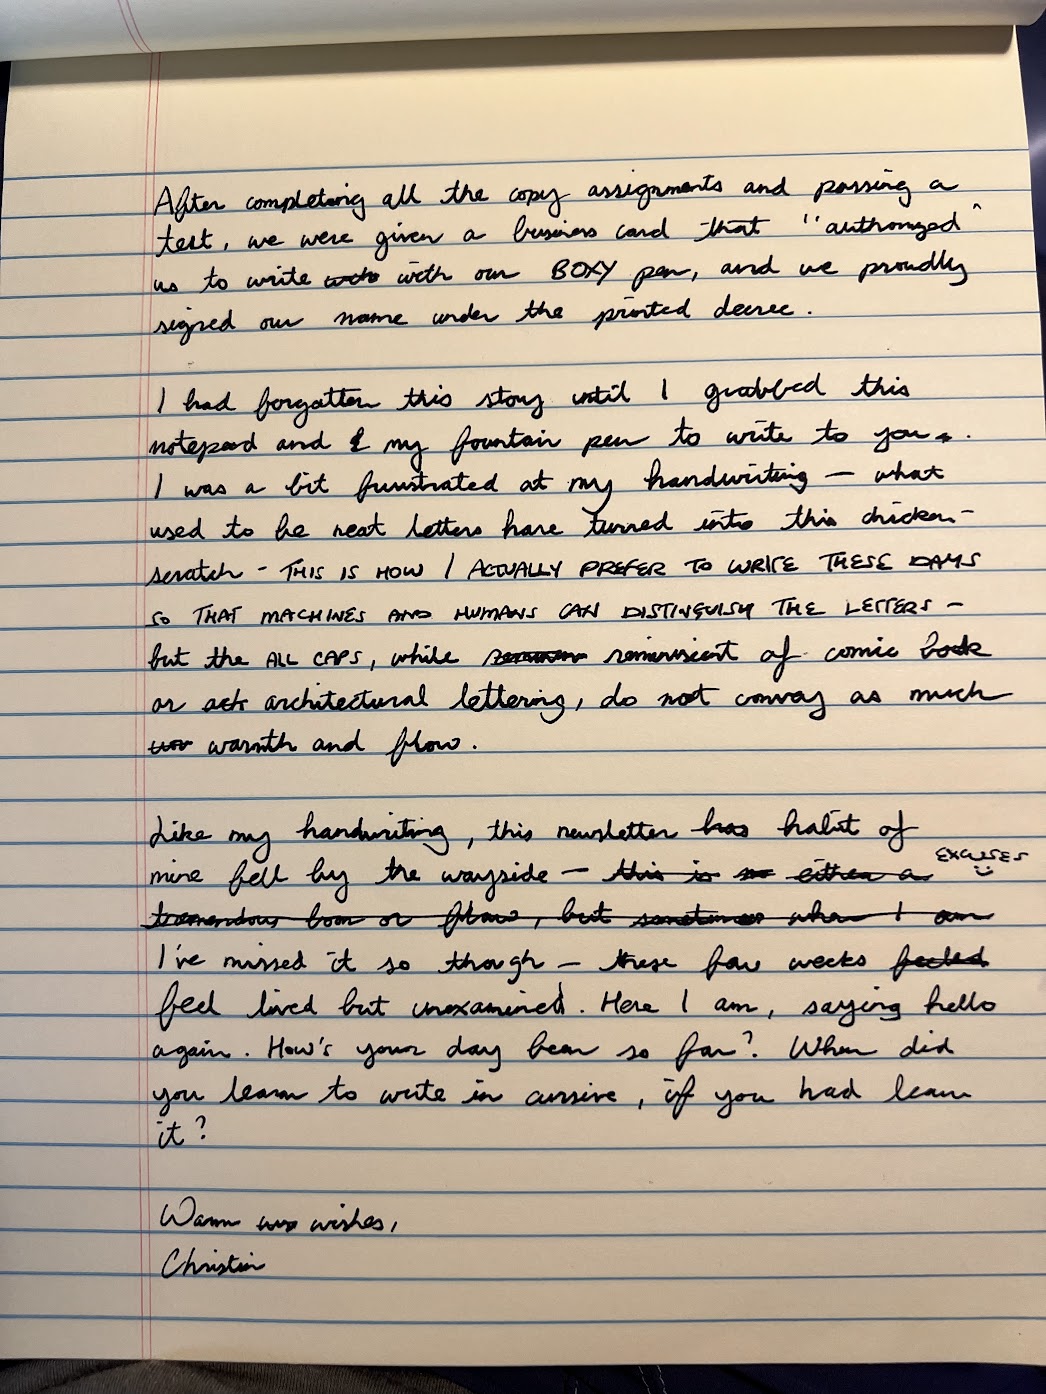 After completing all the copy assignments and passing a
test, we were given a business card that "authorized"
us to write with our BOXY pen, and we proudly
signed our name under the printed decree.
I had forgotten this story until I grabbed this
notepad and my fountain pen to write to you.
I was a bit frustrated at my handwriting — what
used to be neat letters have turned into this chicken-
scratch - THIS IS HOW I ACTUALLY PREFER TO WRITE THESE DAYS
SO THAT MACHINES AND HUMANS CAN DISTINGUISH THE LETTERS -
but the ALL CAPS, while reminiscent of comic book
or architectural lettering, do not convey as much
warmth and flow.
Like my handwriting, this newsletter has habit of
EXCUSES
mine fell by the wayside — this is either a
tremendous boon or flow, but sometimes when I am
I've missed it so though — these few weeks
feel lived but unexamined. Here I am, saying hello
again. How's your day been so far? When did
you learn to write in cursive, if you had learn
it?
Warm wishes,
Christin